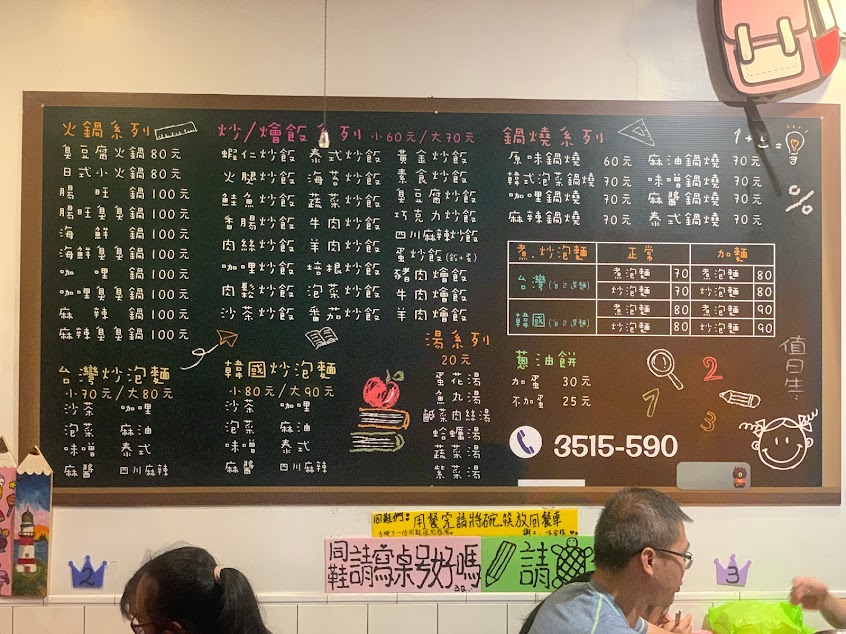 火鍋系列
臭豆腐火鍋 80元
日式小火鍋 80元
腸旺鍋 100元
腸旺臭臭鍋 100元
海鮮鍋 100元
海鮮臭臭鍋 100元
咖哩鍋 100元
咖哩臭臭鍋 100元
麻辣鍋 100元
麻辣臭臭鍋 100元
炒/燴飯系列 小60元/大70元
蝦仁炒飯 泰式炒飯 黃金炒飯
火腿炒飯 海苔炒飯 素食炒飯
鮭魚炒飯 蔬菜炒飯 臭豆腐炒飯
香腸炒飯 牛肉炒飯 巧克力炒飯
肉絲炒飯 羊肉炒飯 四川麻辣炒飯
咖哩炒飯 培根炒飯 蛋炒飯
肉鬆炒飯 泡菜炒飯 豬肉燴飯
沙茶炒飯 番茄炒飯 牛肉燴飯
羊肉燴飯
鍋燒系列
原味鍋燒 60元 麻油鍋燒 70元
韓式泡菜鍋燒 70元 味噌鍋燒 70元
咖哩鍋燒 70元 麻醬鍋燒 70元
麻辣鍋燒 70元 泰式鍋燒 70元
1+ =
%
煮.炒泡麵 正常 加麵
台灣(自己選麵) 煮泡麵 70 煮泡麵 80
炒泡麵 70 炒泡麵 80
韓國(自己選麵) 煮泡麵 80 煮泡麵 90
炒泡麵 80 炒泡麵 90
台灣炒泡麵
小70元/大80元
沙茶 咖哩
泡菜 麻油
味噌 泰式
麻醬 四川麻辣
韓國炒泡麵
小80元/大90元
沙茶 咖哩
泡菜 麻油
味噌 泰式
麻醬 四川麻辣
湯系列
20元
蛋花湯
魚丸湯
鹹菜肉絲湯
蛤蠣湯
蔬菜湯
紫菜湯
蔥油餅
加蛋 30元
不加蛋 25元
1 2 3
值日生:
3515-590
同鞋們: 用餐完請將碗.筷放回餐車
同鞋請寫桌号好嗎
請
2
3